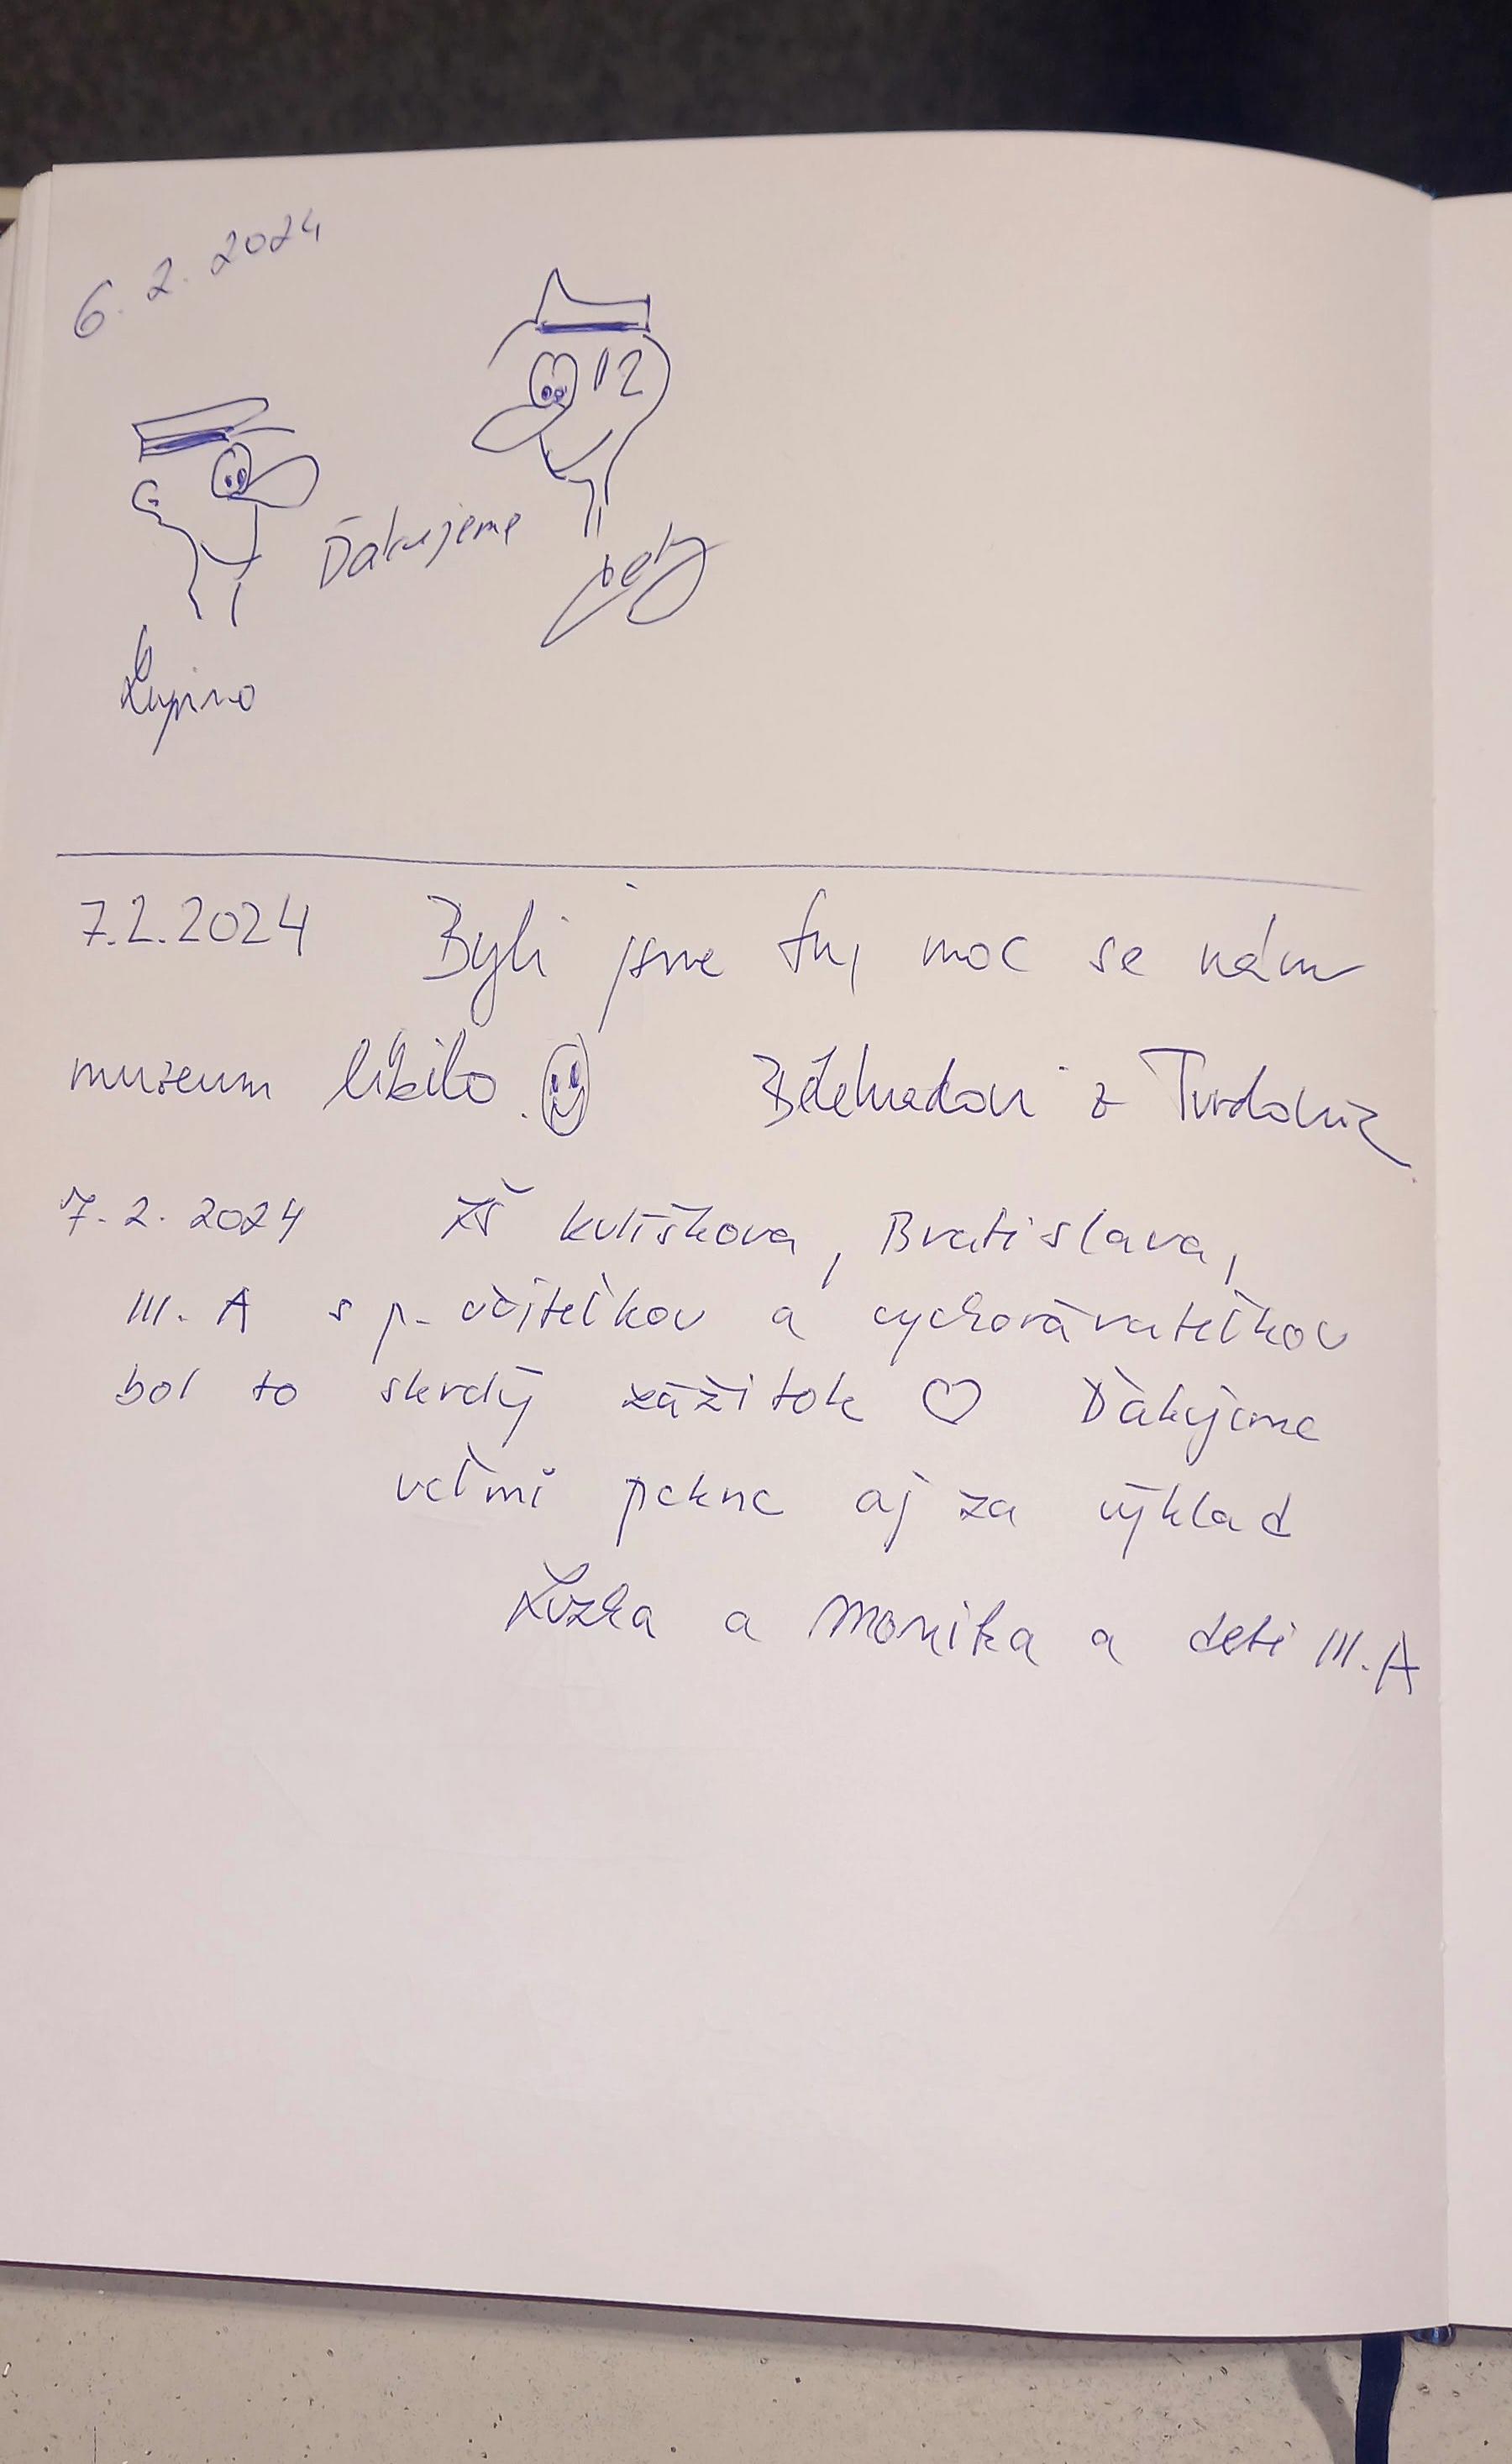 6. 2. 2024
Ďakujeme
7.2.2024 Byli jsme tu, moc se nám
muzeum líbilo. z Tvrdonic
7. 2. 2024 ZŠ Kulíškova, Bratislava,
III. A s p. učiteľkou a vychovávateľkou
bol to skvelý zážitok ♡ Ďakujeme
veľmi pekne aj za výklad
Luzka a Monika a deti III. A